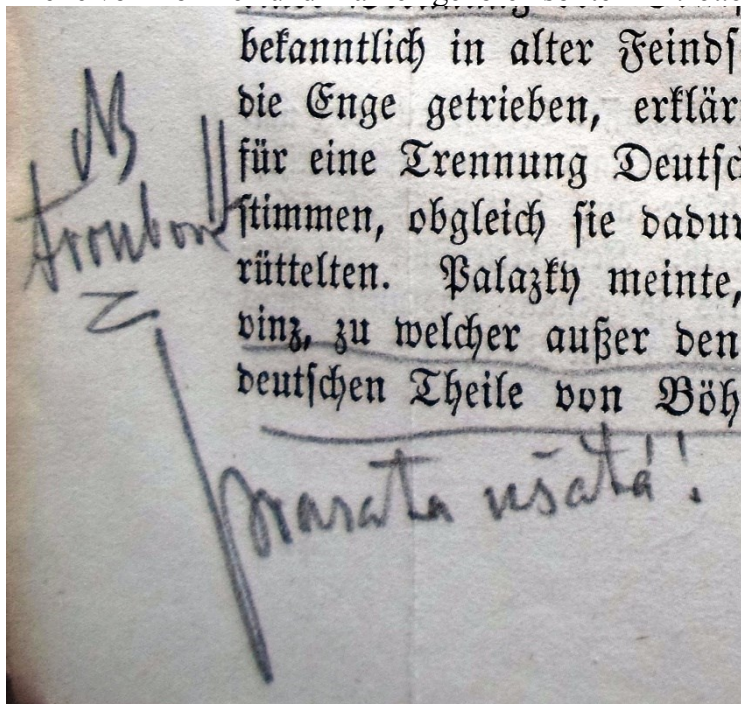 bekanntlich in alter Feinds
die Enge getrieben, erklär
für eine Trennung Deutsc
stimmen, obgleich sie dadur
rüttelten. Palazky meinte,
vinz, zu welcher außer den
deutschen Theile von Böh
NB
troubové
prasata ušatá!